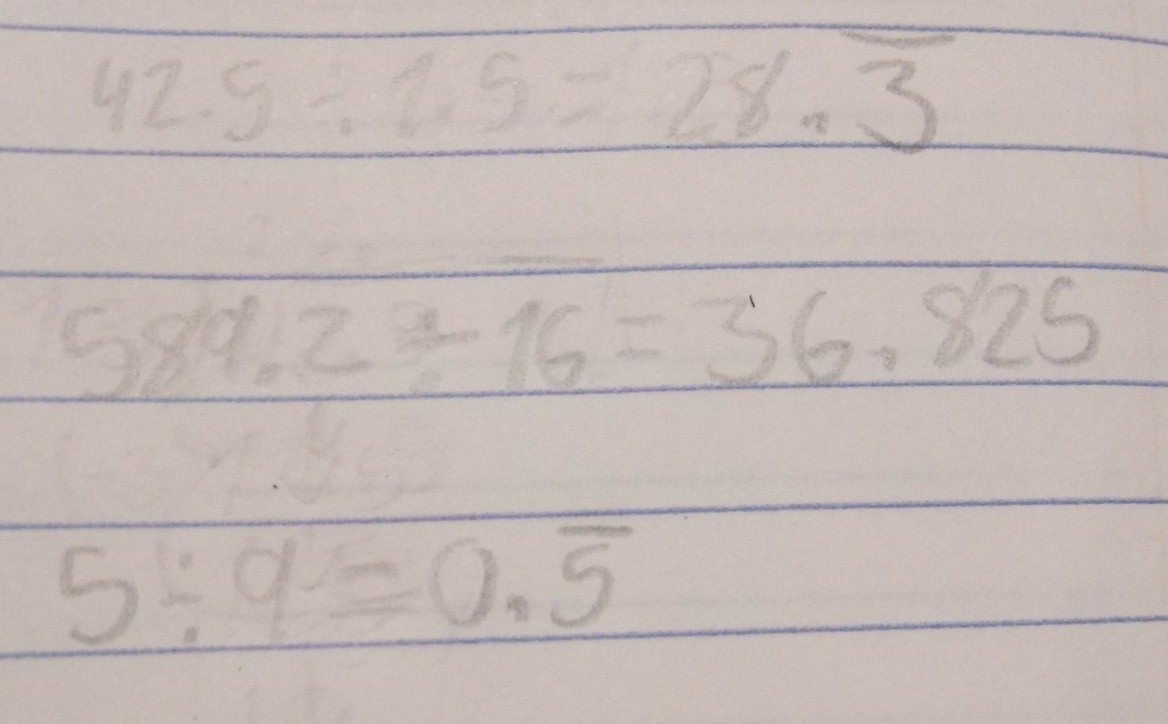 42.5 ÷ 1.5 = 28.3̅
589.2 ÷ 16 = 36.825
5 ÷ 9 = 0.5̅